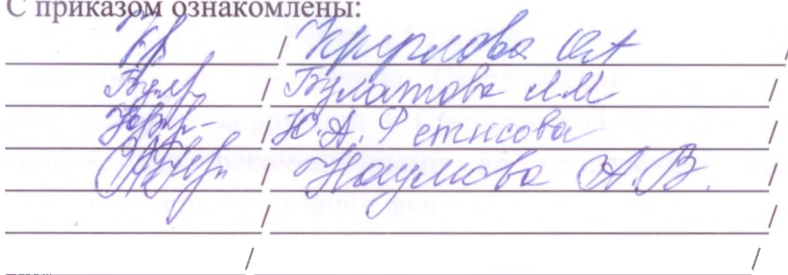 С приказом ознакомлены:
/ Круглова ОА /
Бул / Булатова ЛМ /
/ Ю.А. Фетисова /
/ Наумова А.В. /
/ /
/ /